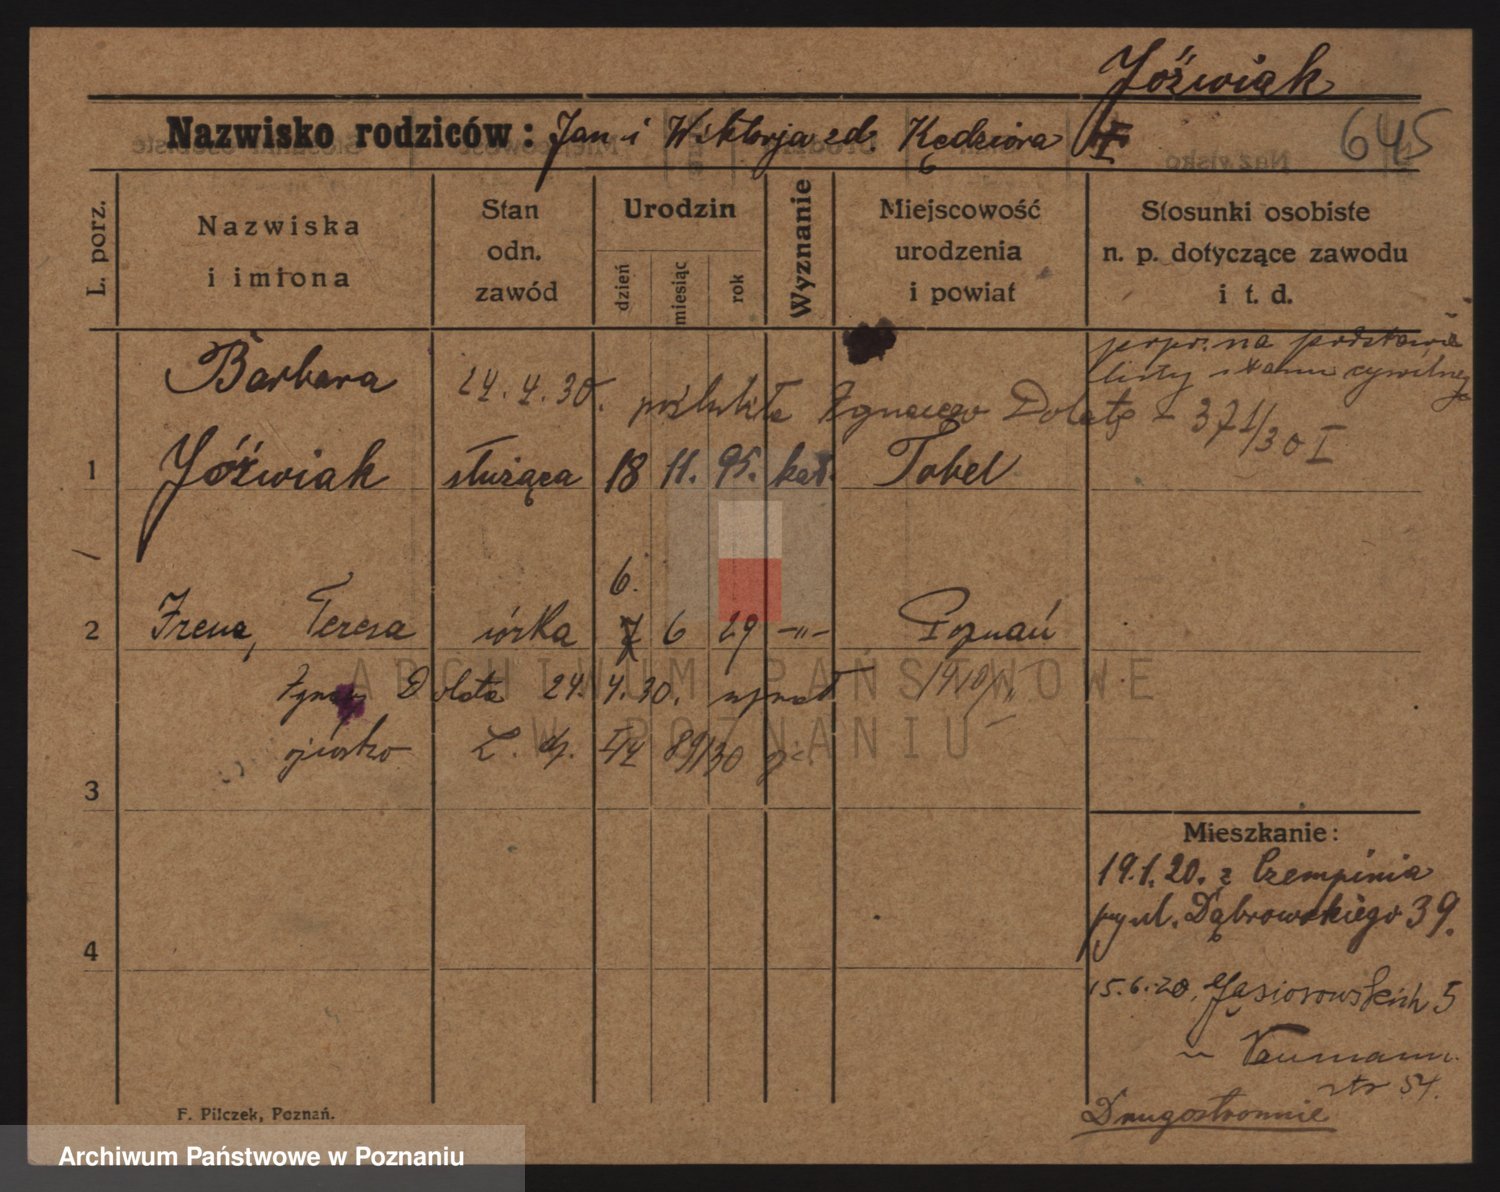 Jóźwiak
Nazwisko rodziców: Jan i Wiktorja zd. Kędziora I 645
L. porz.
Nazwiska
i imiona
Stan
odn.
zawód
Urodzin
dzień
miesiąc
rok
Wyznanie
Miejscowość
urodzenia
i powiat
Stosunki osobiste
n. p. dotyczące zawodu
i t. d.
popr. na podstawie
listy stanu cywilnego
Barbara 24.4.30. poślubiła Ignacego Dolatę - 371/30 I
1 Jóźwiak służąca 18 11. 95. kat. Tobel
6.
2 Irena, Teresa córka 7 6 29 -"- Poznań
Ignacy Dolata 24. 4. 30. uznał
ojcostwo 89/30
3
Mieszkanie:
19.1.20. z Czempinia
przy ul. Dąbrowskiego 39.
4
15.6.20. Gąsiorowskich 5
u Neumann
str 54.
Drugostronnie
F. Pilczek, Poznań.
ARCHIWUM PAŃSTWOWE
W POZNANIU
Archiwum Państwowe w Poznaniu